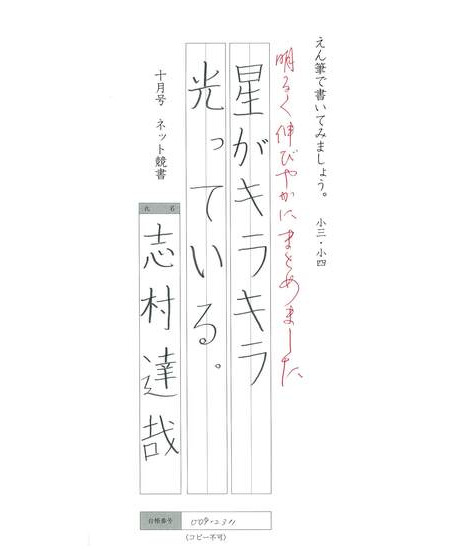 えん筆で書いてみましょう。 小三・小四
明るく伸びやかにまとめました
星がキラキラ
光っている。
十月号 ネット競書
氏名
志村達哉
台帳番号 009-2311
(コピー不可)